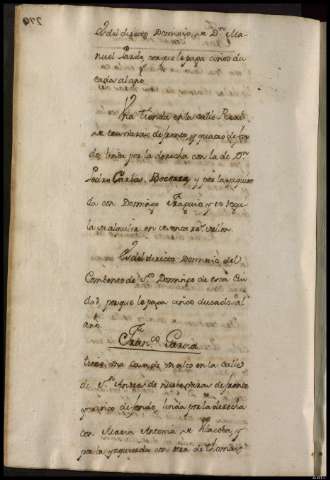 Es del directo Dominio, de Dn. Ma-
nuel Pardo, porque le paga cinco du-
cados al año
Una tienda en la calle Real
de tres varas de frente, y quatro de fon-
do, linda por la derecha con la de Dn.
Pedro Carlos, y por la izquier-
da con Domingo y se regu-
la su alquiler en sesenta rs. vellon
Es del directo Dominio del
Combento de Sto. Domingo de esta Ciu-
dad, porque le paga cinco ducados al
año
Franco. Garcia
tiene una casa de un alto en la calle
de Sn. Andres de nueve varas de frente
y de fondo, linda por la derecha
con Maria Antonia de y
por la izquierda con otra de Thomas